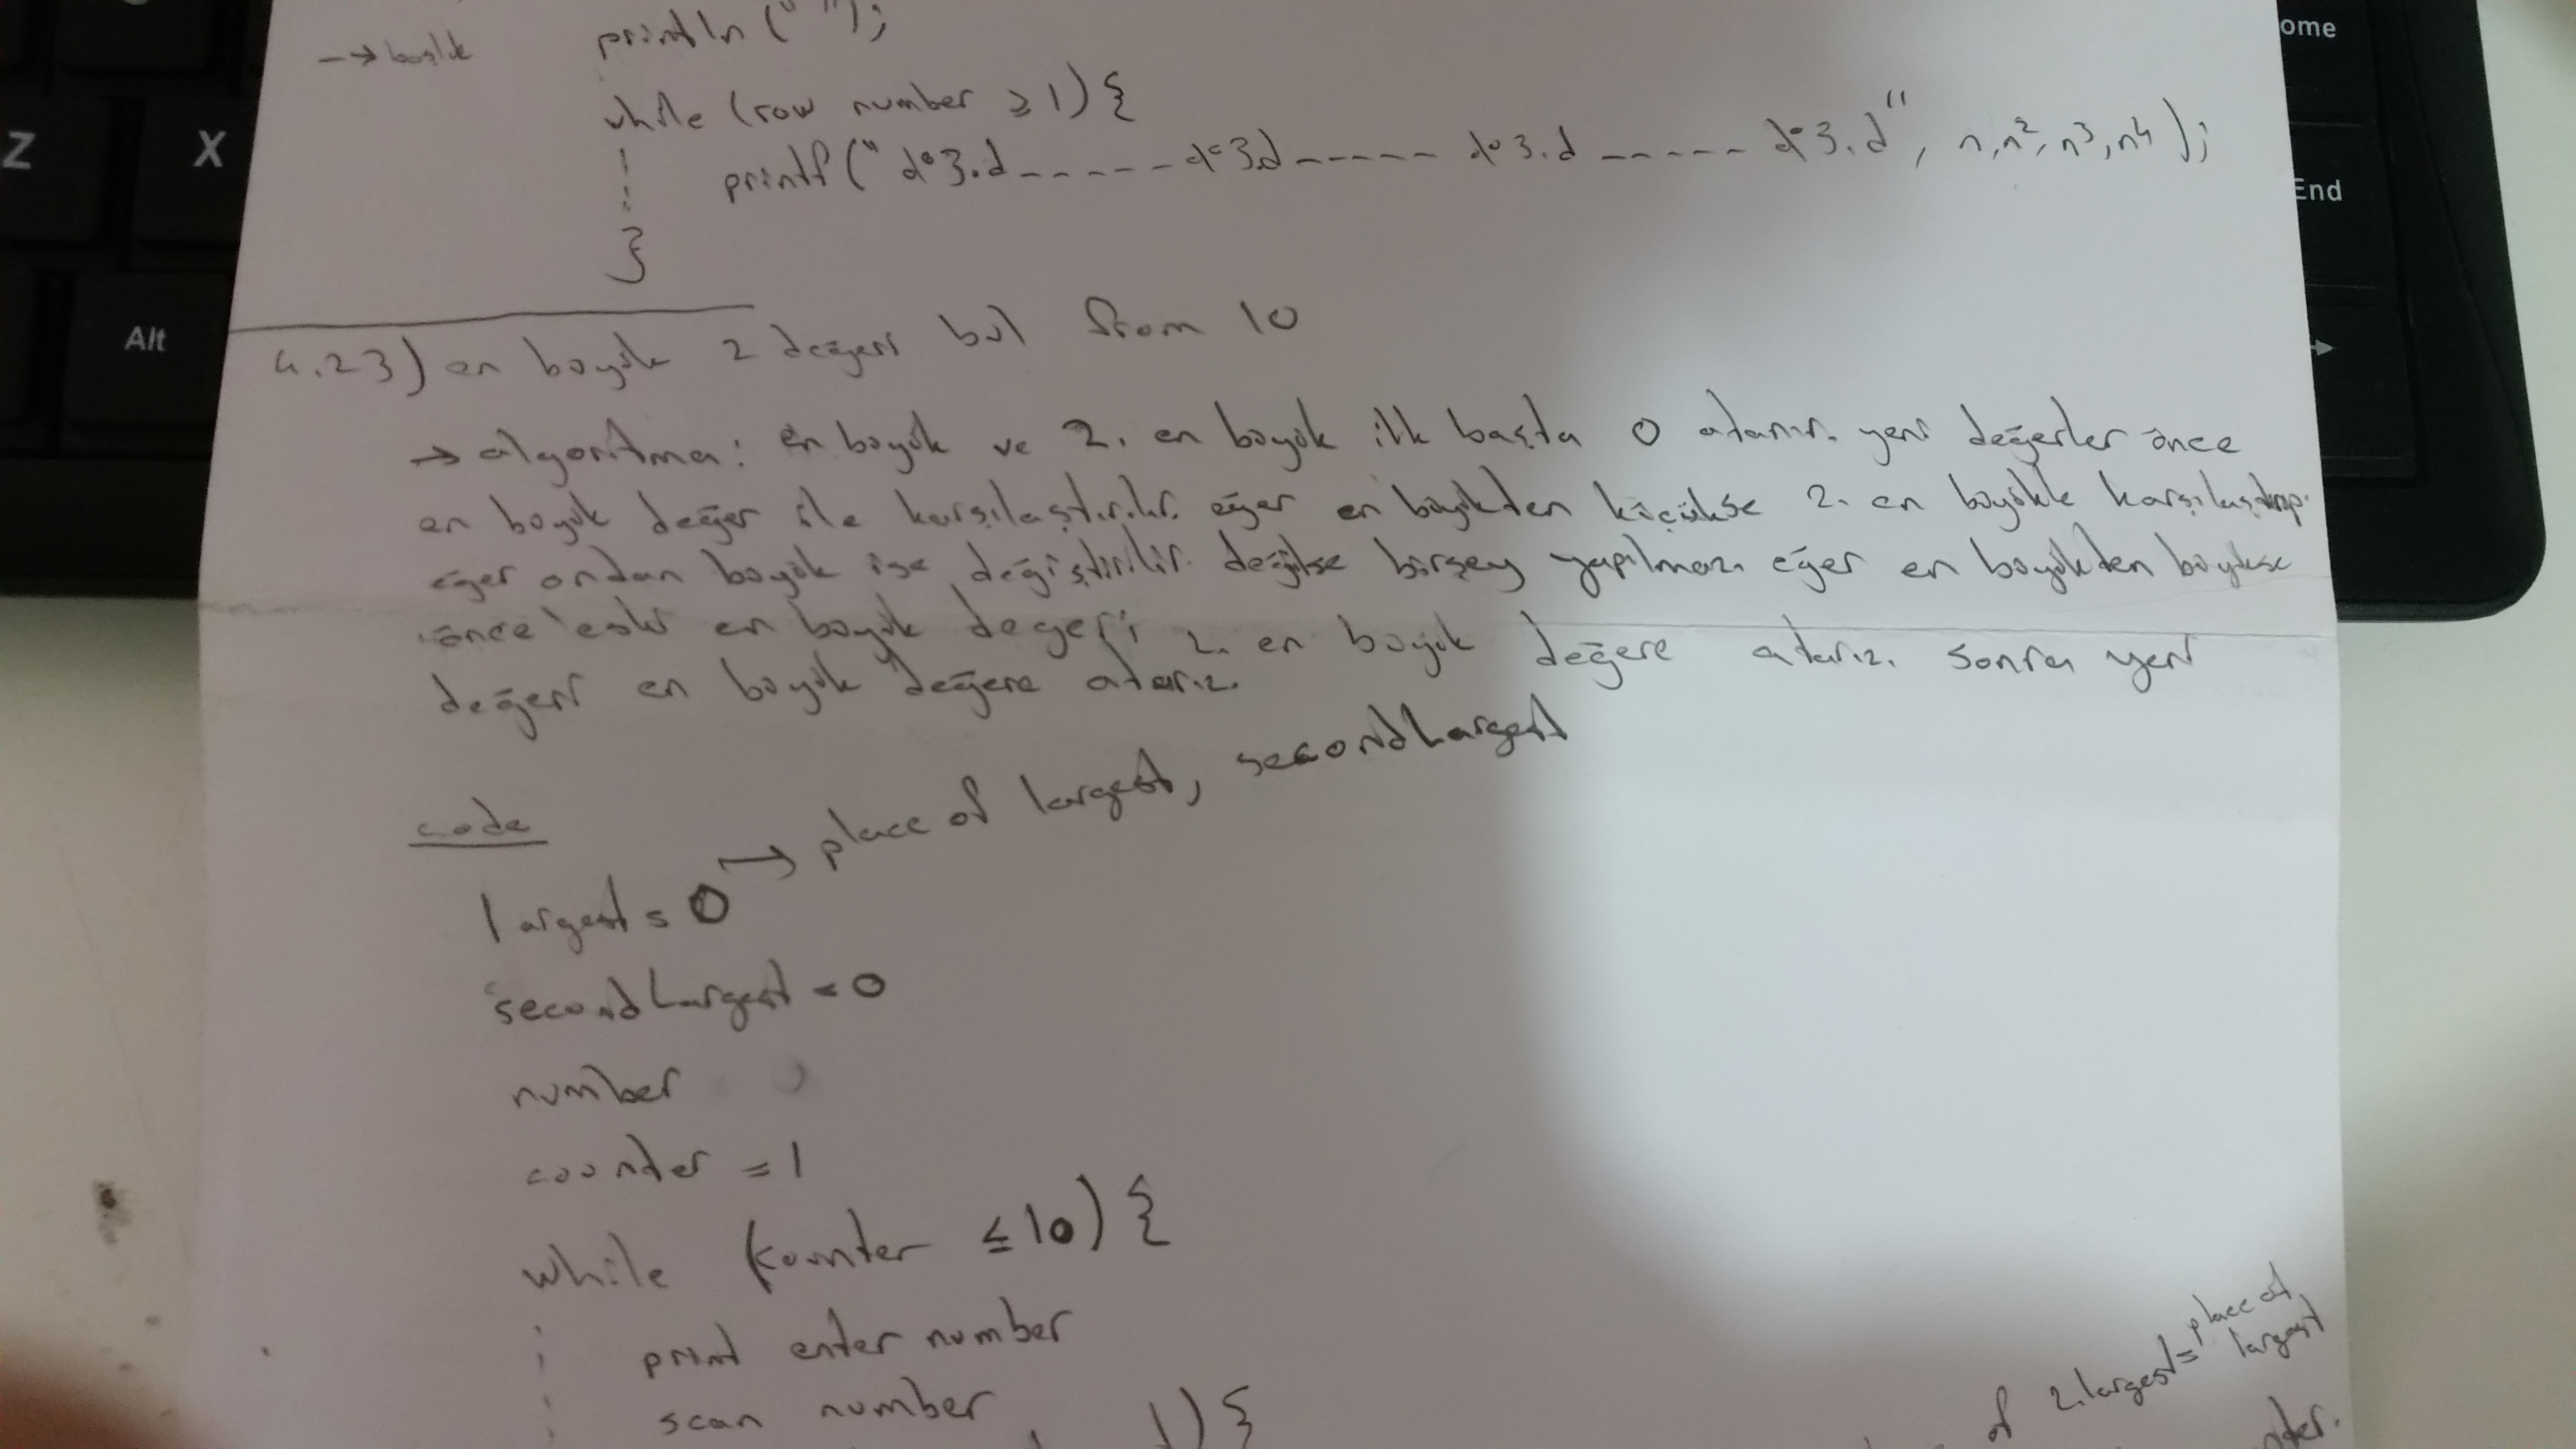 → başlık println (" ");
while (row number ≥ 1) {
printf ("d°3.d------d°3d----- d°3.d ----- d°3.d", n, n², n³, n⁴);
}
4.23) en büyük 2 değeri bul from 10
→ algoritma: en büyük ve 2. en büyük ilk başta 0 atanır. yeni değerler önce
en büyük değer ile karşılaştırılır. eğer en büyükten küçükse 2. en büyükle karşılaştırıp.
eğer ondan büyük ise değiştirilir. değilse birşey yapılmaz. eğer en büyükten büyükse
önce eski en büyük değeri 2. en büyük değere atarız. sonra yeni
değeri en büyük değere atarız.
code
largest = 0 → place of largest, secondLargest
secondLargest = 0
number
counter = 1
while (counter ≤ 10) {
print enter number
scan number
) {
of 2.largest = place of
largest
Z
X
Alt
ome
End